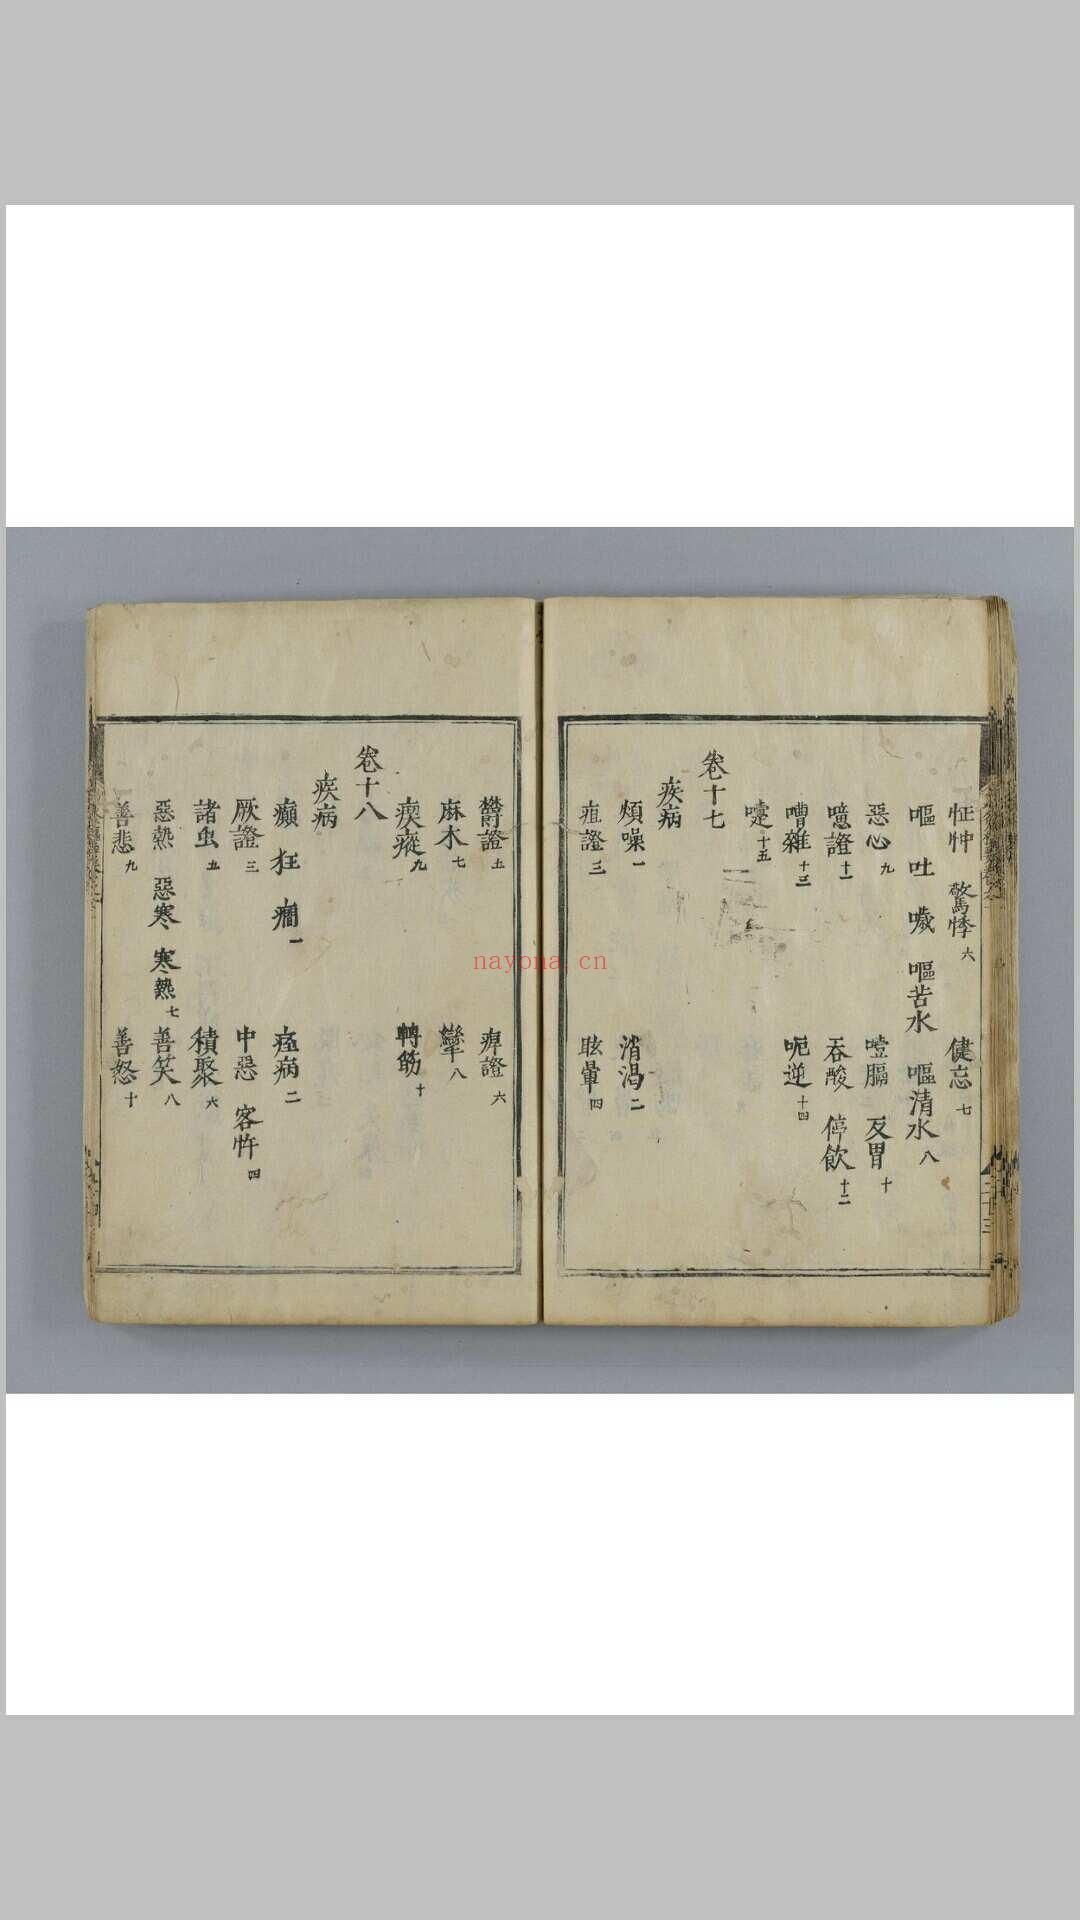 怔忡 驚悸六 健忘七
嘔 吐 噦 嘔苦水 嘔清水八
惡心九 噎膈 反胃十
噫證十一 吞酸 停飲十二
嘈雜十三 呃逆十四
嚏十五
卷十七
疾病
煩噪一 消渴二
疸證三 眩暈四
欝證五 痺證六
麻木七 攣八
瘈瘲九 轉筋十
卷十八
疾病
癲 狂 癎一 痓病二
厥證三 中惡 客忤四
諸虫五 積聚六
惡熱 惡寒 寒熱七 善笑八
善悲九 善怒十
二十三
nayona.cn